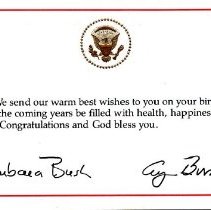 We send our warm best wishes to you on your bir
the coming years be filled with health, happines
Congratulations and God bless you.
Bush